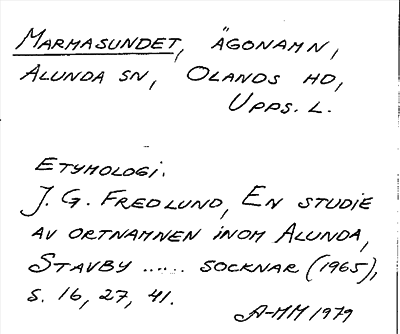 MARMASUNDET, ÄGONAMN,
ALUNDA SN, OLANDS HD,
UPPS. L.
ETYMOLOGI.
J. G. FREDLUND, EN STUDIE
AV ORTNAMNEN INOM ALUNDA,
STAVBY ...... SOCKNAR (1965),
S. 16, 27, 41.
A-MM 1979